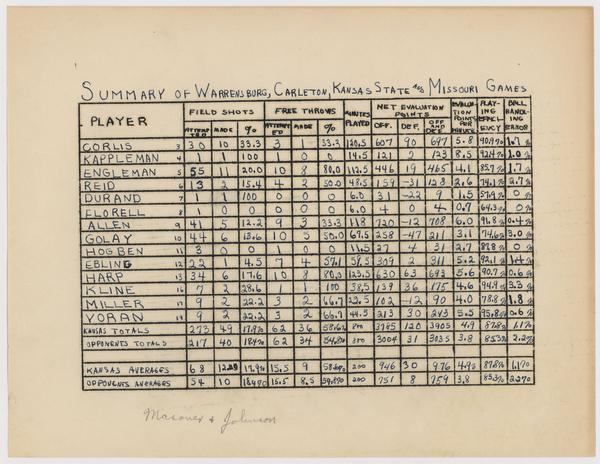 SUMMARY OF WARRENSBURG, CARLETON, KANSAS STATE AND MISSOURI GAMES
PLAYER FIELD SHOTS FREE THROWS MINUTES PLAYED NET EVALUATION POINTS EVALUATION POINTS PER MINUTE PLAYING EFFICIENCY BALL HANDLING ERROR
ATTEMPTED MADE % ATTEMPTED MADE % OFF. DEF. OFF AND DEF.
CORLIS 3 30 10 33.3 3 1 33.3 120.5 607 90 697 5.8 90.9% 1.7%
KAPPLEMAN 4 1 1 100 1 0 0 14.5 121 2 123 8.5 92.4% 1.0%
ENGLEMAN 5 55 11 20.0 10 8 80.0 112.5 446 19 465 4.1 85.7% 1.7%
REID 6 13 2 15.4 4 2 50.0 48.5 159 -31 128 2.6 74.1% 2.7%
DURAND 7 1 1 100 0 0 0 6.0 31 -22 9 1.5 57.9% 0%
FLORELL 8 1 0 0 0 0 0 6.0 4 0 4 0.7 64.3% 0%
ALLEN 9 41 5 12.2 9 3 33.3 118 720 -12 708 6.0 91.8% 0.4%
GOLAY 10 44 6 13.6 10 5 50.0 67.5 258 -47 211 3.1 74.6% 3.0%
HOGBEN 11 3 0 0 1 0 0 11.5 27 4 31 2.7 87.8% 0%
EBLING 12 22 1 4.5 7 4 57.1 59.5 309 2 311 5.2 92.1% 1.4%
HARP 13 34 6 17.6 10 8 80.0 123.5 630 63 693 5.6 90.7% 0.6%
KLINE 16 7 2 28.6 1 1 100 38.5 139 36 175 4.6 94.9% 3.3%
MILLER 17 9 2 22.2 3 2 66.7 22.5 102 -12 90 4.0 78.8% 1.8%
VORAN 19 9 2 22.2 3 2 66.7 44.5 213 30 243 5.5 95.8% 0.6%
KANSAS TOTALS 273 49 17.9% 62 36 58.06% 800 3785 120 3905 4.9 87.8% 1.1%
OPPONENTS TOTALS 217 40 18.4% 62 34 54.8% 800 3004 31 3035 3.8 85.3% 2.27%
KANSAS AVERAGES 68 12.25 17.9% 15.5 9 58.06% 200 946 30 976 4.9% 87.8% 1.1%
OPPONENTS AVERAGES 54 10 18.4% 15.5 8.5 54.8% 200 751 8 759 3.8 85.3% 2.27%
& Johnson